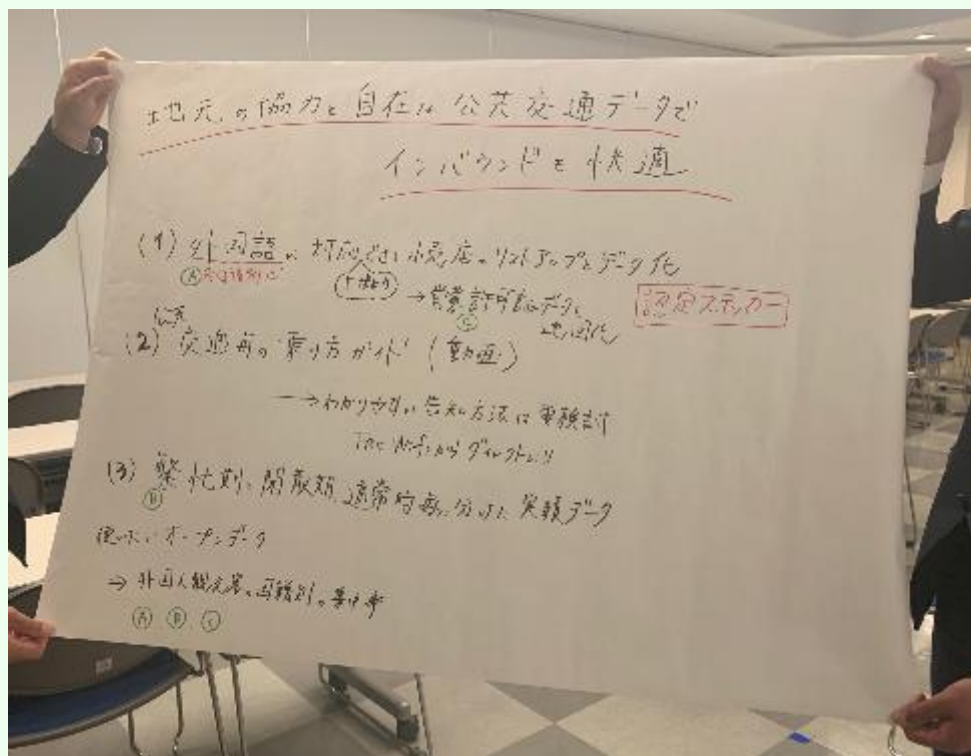 地元の協力と自在な公共交通データで
インバウンドも快適
(1) 外国語に対応できる小売店のリストアップとデータ化
Ⓐ
→営業許可データ
Ⓒ
地図化
認定ステッカー
(2) 交通毎の乗り方ガイド (動画)
→わかりやすい告知方法は要検討
ダイレクトに
(3) 繁忙期、閑散期、通常時毎に分けた実績データ
Ⓑ
使いたいオープンデータ
⇒ 外国人観光客の国籍別の
Ⓐ Ⓑ Ⓒ